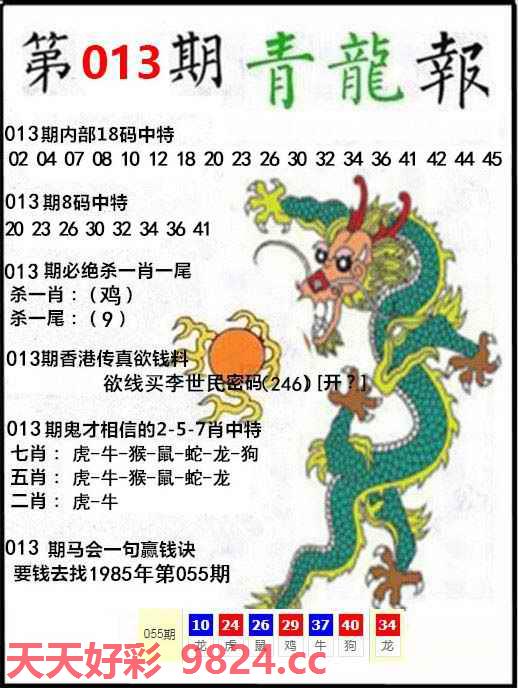 第013期青龍報
013期内部18码中特
02 04 07 08 10 12 18 20 23 26 30 32 34 36 41 42 44 45
013期8码中特
20 23 26 30 32 34 36 41
013 期必绝杀一肖一尾
杀一肖：（鸡）
杀一尾：（9）
013期香港传真欲钱料
欲线买李世民密码(246) [开？]
013期鬼才相信的2-5-7肖中特
七肖：虎-牛-猴-鼠-蛇-龙-狗
五肖：虎-牛-猴-鼠-蛇-龙
二肖：虎-牛
013 期马会一句赢钱诀
要钱去找1985年第055期
055期 10 24 26 29 37 40 34
龙 虎 鼠 鸡 牛 狗 龙
天天好彩 9824.cc